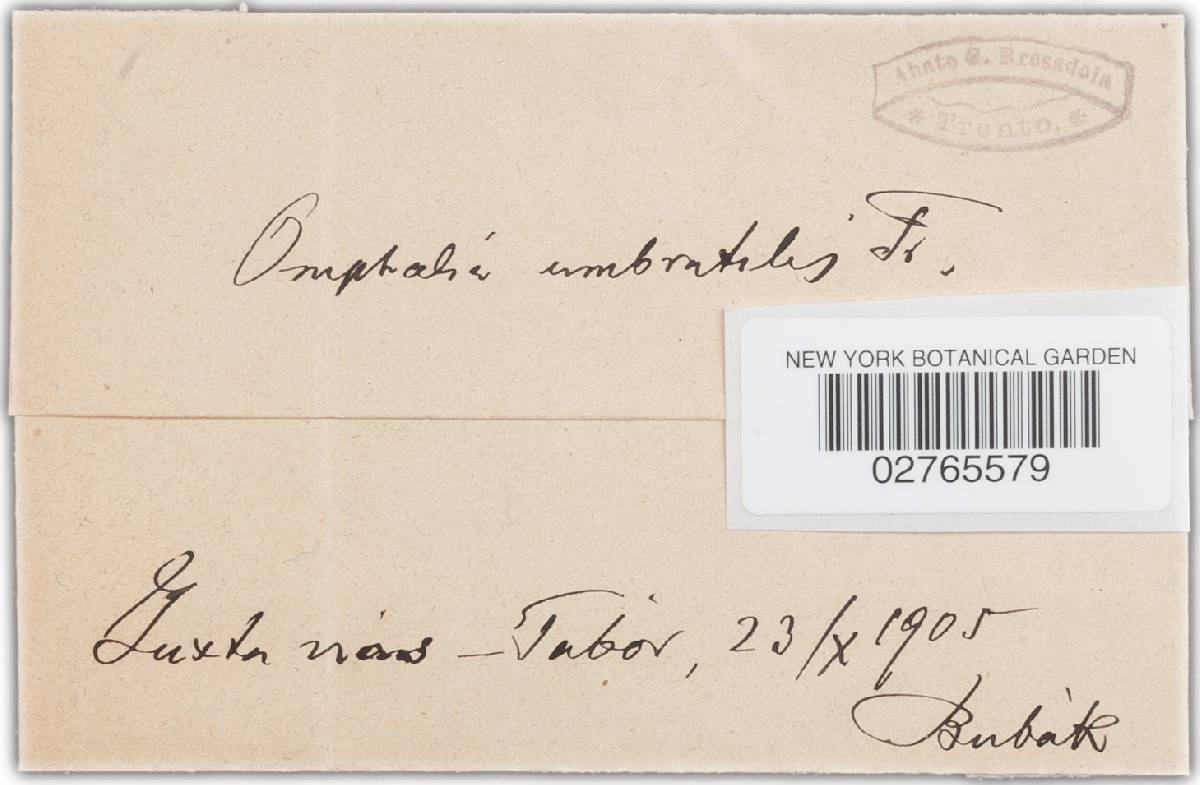 Abate G. Bresadola
* Trento. *
Omphalia umbratilis Fr.
NEW YORK BOTANICAL GARDEN
02765579
Juxta vias – Tabor, 23/X 1905
Bubák